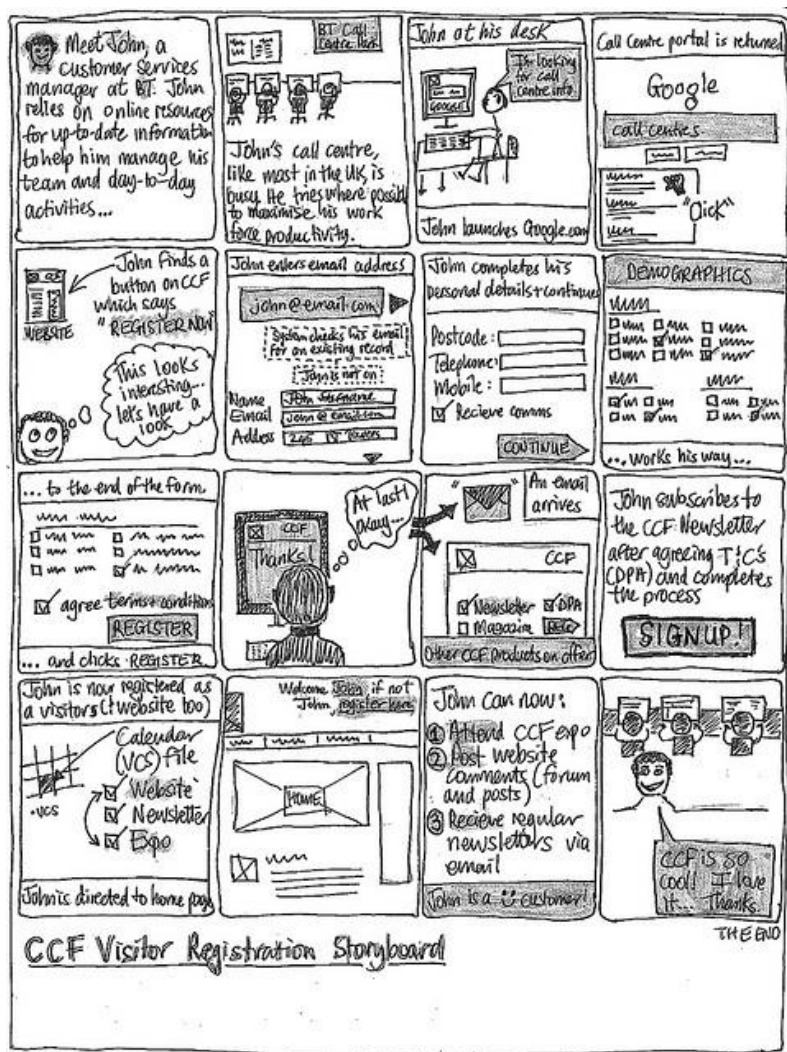 Meet John, a
customer services
manager at BT. John
relies on online resources
for up-to-date information
to help him manage his
team and day-to-day
activities...
BT Call
Centre Park
John's call centre,
like most in the UK, is
busy. He tries where possible
to maximise his work
force productivity.
John at his desk
I'm looking
for call
centre info
GOOGLE
John launches Google.com
Call Centre portal is returned
Google
call centres
"Click"
John finds a
button on CCF
which says
"REGISTER NOW"
WEBSITE
This looks
interesting...
let's have a
look
John enters email address
john@email.com
System checks his email
for an existing record
John is not on
Name John
Email john@email.com
Address 245 Towers
John completes his
personal details + continues
Postcode:
Telephone:
Mobile:
Recieve comms
CONTINUE
DEMOGRAPHICS
...works his way...
... to the end of the form.
agree terms + conditions
REGISTER
... and clicks REGISTER
At last!
okay...
CCF
Thanks!
An email
arrives
CCF
Newsletter DPA
Magazine
Other CCF products on offer
John subscribes to
the CCF Newsletter
after agreeing T&C's
(DPA) and completes
the process
SIGNUP!
John is now registered as
a visitors (+ website too)
Calendar
(VCS) file
.vcs
Website
Newsletter
Expo
John is directed to home page
Welcome John if not
John, register here
HOME
John can now:
1 Attend CCF expo
2 Post website
comments (forum
and posts)
3 Recieve regular
newsletters via
email
John is a customer!
CCF is so
cool! I love
it... Thanks.
THE END
CCF Visitor Registration Storyboard